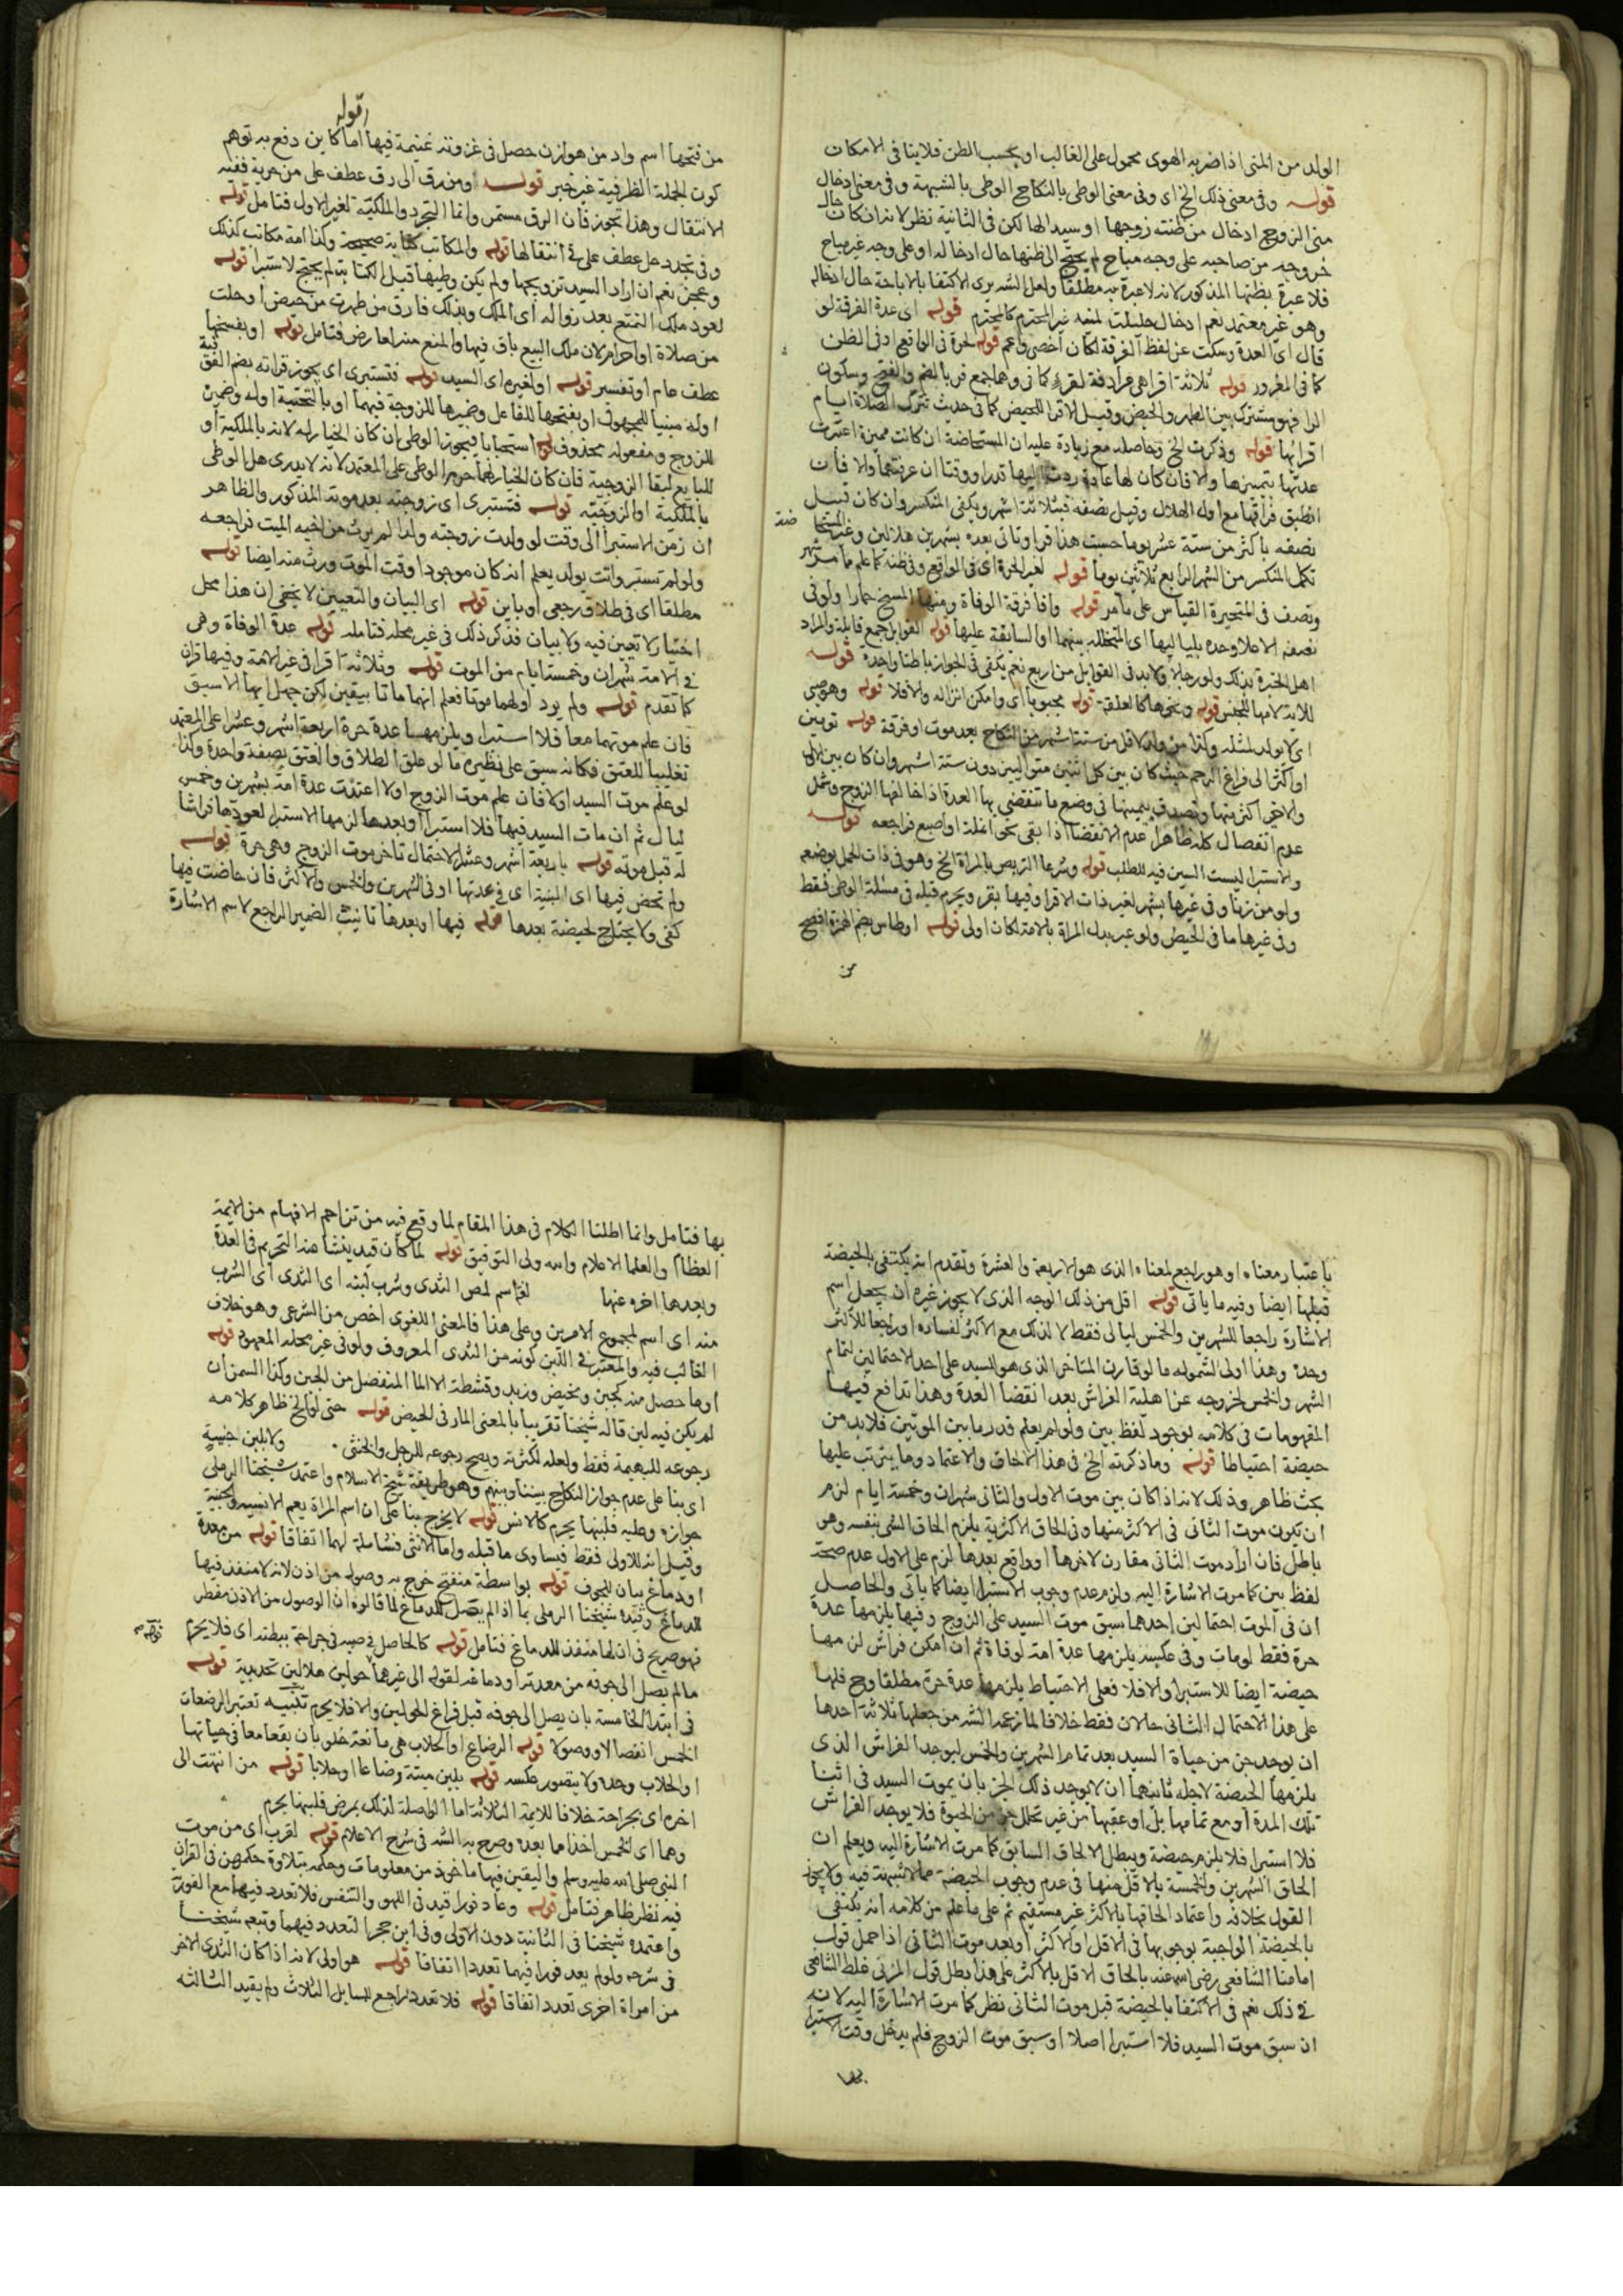 الولد من المنى اذا ضربه الهوى محمول على الغالب او بحسب الظن فلا ينافى الامكان
قوله وفى معنى ذلك الخ اى وفى معنى الوطى بالنكاح الوطى بالشبهة وفى معنى ادخال
منى الزوج ادخال من ظنته زوجها او سيدها لكن فى الثانية نظر لانه ان كان حال
خروجه من صاحبه على وجه مباح لم يحتج الى ظنها حال ادخاله او على وجه غير مباح
فلا عبرة بظنها المذكور لانه لا عبرة به مطلقا ولعل الشه يرى الاكتفا بالاباحة حال ادخاله
وهو غير معتمد نعم ادخال حليلته لمنيه غير المحترم كالمحترم قوله اى عدة الفرقة لو
قال اى العدة وسكت عن لفظ الفرقة لكان اخصر واعم قوله لحرة فى الواقع او فى الظن
كما فى المغرور قوله ثلاثة اقراء هى مرادفة لقروء كما فى وهما جمع قرء بالضم والفتح وسكون
الرا فهو مشترك بين الطهر والحيض وقيل الاقرا للحيض كما فى حديث تترك الصلاة ايام
اقرائها قوله وذكرت الخ وحاصله مع زيادة عليه ان المستحاضة ان كانت مميزة اعتبرت
عدتها بتمييزها والا فان كان لها عادة ردت اليها قدرا ووقتا ان عرفتهما والا فان
انطبق فراقها مع اول الهلال وقبل نصفه فبثلاثة اشهر ويكفى المنكسر وان كان قبل
نصفه باكثر من ستة عشر يوما حسبت هذا قرا وتاتى بعده بشهرين هلالين وغير المستحا
ضة
تكمل المنكسر من الشهر الرابع ثلاثين يوما قوله لغير الحرة اى فى الواقع وفى ظنه كما علم ما مر شهر
ونصف فى المتحيرة القياس على ما مر قوله وافا فرقة الوفاة ومنها المسخ حمارا ولو فى
نصفه الاعلا وحده بلياليها اى المتخلله بينهما او السابقة عليها قوله القوابل جمع قابلة والمراد
اهل الخبرة بذلك ولو رجالا ولابد فى القوابل من اربع نعم يكفى فى الجواز باطنا واحدة قوله
للاية لامها للجنس قوله ونحوها كالعلقة قوله مجبوبا اى وامكن انزاله والا فلا قوله وهو صبى
اى لا يولد لمثله وكذا من ولد لاقل من ستة اشهر من النكاح بعد موت او فرقة قوله تومين
او اكثر الى فراغ الرحم حيث كان بين كل اثنين متواليين دون ستة اشهر وان كان بين الاول
والاخير اكثر منها وتصدق بيمينها فى وضع ما تنقضى بها العدة اذا خالفها الزوج وشمل
عدم انفصال كله ظاهرا عدم الانقضا اذا بقى نحو انملة او اصبع فراجعه قوله
والاستبرا ليست السين فيه للطلب قوله وشرعا التربص بالمراة الخ وهو فى ذات الحمل بوضعه
ولو من زنا وفى غيرها بشهر لغير ذات الاقرا وفيها بقرء ويحرم قبله فى مسئلة الوطى فقط
وفى غيرها ما فى الحيض ولو عبر بدل المراة بالامة لكان اولى قوله اوطاس بضم الهمزة افصح
من
قوله
من فتحها اسم واد من هوازن حصل فى غزوته غنيمة فيها اما كاين دفع به توهم
كون الجملة الظرفية غير خبر قوله او من رق الى رق عطف على من حرية ففيه
الانتقال وهذا تجوز فان الرق مستمر وانما التجرد والملكية لغير الاول فتامل قوله
وفى تجدد حل عطف على فى انتقالها قوله والمكاتب كتابة صحيحة وكذا امة مكاتب كذلك
وعجز نعم ان اراد السيد تزويجها ولم يكن وطيها قبل الكتابة لم يحتج لاستبرا قوله
لعود ملك التمتع بعد زواله اى الملك وبذلك فارق من طهرت من حيض او حلت
من صلاة او احرام لان ملك البيع باق فيها والمنع منه لعارض فتامل قوله او بفسخها
عطف عام او تفسير قوله او لغيره اى السيد قوله فتستبرى اى يجوز قراته بضم الفوقية
اوله مبنيا للمجهول او بفتحها للفاعل وضميرها للزوجة فيهما او بالتحتية اوله وضميره
للزوج ومفعوله محذوف قوله استحبابا فيجوز الوطى ان كان الخيار له لانه بالملكية او
للبايع لبقا الزوجية فان كان الخيار لهما حرم الوطى على المعتمد لانه لا يدرى هل الوطى
بالملكية او الزوجية قوله فتستبرى اى زوجته بعد موته المذكور والظاهر
ان زمن الاستبرا الى وقت لو ولدت زوجته ولدا لم يرث من اخيه الميت فراجعه
ولو لم تستبر واتت بولد يعلم انه كان موجودا وقت الموت ورث منه ايضا قوله
مطلقا اى فى طلاق رجعى او باين قوله اى البيان والتعيين لا يخفى ان هذا محل
اختيار لا تعيين فيه ولا بيان فذكر ذلك فى غير محله فتامله قوله عدة الوفاة وهى
فى الامة شهران وخمسة ايام من الموت قوله وثلاثة اقرا فى غير الامة وفيها قران
كما تقدم قوله ولم يرد اولهما موتا فعلم انهما ماتا بيقين لكن جهل ايهما الاسبق
فان علم موتهما معا فلا استبراء ويلزمها عدة حرة اربعة اشهر وعشرا على المعتمد
تغليبا للعتق فكانه سبق على نظيره ما لو علق الطلاق والعتق بصفة واحدة وكذا
لو علم موت السيد اولا فان علم موت الزوج اولا اعتدت عدة امة بشهرين وخمس
ليال ثم ان مات السيد فيها فلا استبرا او بعدها لزمها الاستبرا لعودها فراشا
له قبل موته قوله باربعة اشهر وعشر لاحتمال تاخر موت الزوج وهى حرة قوله
ولم تحض فيها اى المبنية اى فى عدتها او فى الشهرين والخمس والاكثر فان حاضت فيها
كفى ولا يحتاج لحيضة بعدها قوله فيها او بعدها تانيث الضمير الراجع لاسم الاشارة
باعتبار معناه او هو راجع لمعناه الذى هو الاربعة والعشرة وتقدم انه يكتفى بالحيضة
قبلها ايضا وفيه ما ياتى قوله اقل من ذلك الوجه الذى لا يجوز غيره ان يجعل اسم
الاشارة راجعا للشهرين والخمس ليالى فقط لا لذلك مع الاكثر لفساده او راجعا للاكثر
وحده وهذا اولى لشموله ما لو قارن المتاخر الذى هو السيد على احد الاحتمالين لتمام
الشهر والخمس لخروجه عن اهلية الفراش بعد انقضا العدة وهذا تدافع فيها
المفهومات فى كلامه لوجود لفظ بين ولو لم يعلم قدر ما بين الموتين فلابد من
حيضة احتياطا قوله وما ذكرته الخ فى هذا الالحاق والاعتماد وما يترتب عليها
بحث ظاهر وذلك لانه اذا كان بين موت الاول والثانى شهران وخمسة ايام لزم
ان تكون موت الثانى فى الاكثر منها وفى الحاق الاكثر به يلزم الحاق الشى بنفسه وهو
باطل فان اراد موت الثانى مقارن لاخرها او واقع بعدها لزم على الاول عدم صحة
لفظ بين كما مرت الاشارة اليه ولزم عدم وجوب الاستبرا ايضا كما ياتى والحاصل
ان فى الموت احتمالين احدهما سبق موت السيد على الزوج وفيها يلزمها عدة
حرة فقط لو مات وفى عكسه يلزمها عدة امة لوفاة ثم ان امكن فراش لزمها
حيضة ايضا للاستبرا والا فلا فعلى الاحتياط يلزمها عدة حرة مطلقا وح فلها
على هذا الاحتمال الثانى حالان فقط خلافا لما زعمه الشه من جعلها ثلاثة احدها
ان يوجد جزء من حياة السيد بعد تمام الشهرين والخمس ليوجد الفراش الذى
يلزمها الحيضة لاجله ثانيهما ان لا يوجد ذلك الجزء بان يموت السيد فى اثنا
تلك المدة او مع تمامها بل او عقبها من غير تخلل جزء من الحيوة فلا يوجد الفراش
فلا استبرا فلا يلزم حيضة ويبطل الالحاق السابق كما مرت الاشارة اليه ويعلم ان
الحاق الشهرين والخمسة بالاقل منها فى عدم وجوب الحيضة مما لا شبهة فيه ولا يجوز
القول بخلافه واعتماد الحاقها بالاكثر غير مستقيم ثم على ما علم من كلامه انه يكتفى
بالحيضة الواجبة بوجوبها فى الاقل او الاكثر او بعد موت الثانى اذا حمل قول
امامنا الشافعى رضى الله عنه بالحاق الاقل بالاكثر على هذا بطل قول المزنى غلط الشافعى
فى ذلك نعم فى الاكتفا بالحيضة قبل موت الثانى نظر كما مرت الاشارة اليه لانه
ان سبق موت السيد فلا استبرا اصلا او سبق موت الزوج فلم يدخل وقت الاستبرا
بها
بها فتامل وانما اطلنا الكلام فى هذا المقام لما وقع فيه من تزاحم الافهام من الايمة
العظام والعلما الاعلام والله ولى التوفيق قوله لما كان قيد ينشا عنه التحريم فى العدة
وبعدها اخره عنها لغة اسم لمص الثدى وشرب لبنه اى الثدى اى الشرب
منه اى اسم لمجموع الامرين وعلى هذا فالمعنى اللغوى اخص من الشرعى وهو خلاف
الغالب فيه والمعتبر فى اللبن كونه من الثدى المعروف ولو فى غير محله المعهود قوله
او ما حصل منه كجبن ومخيض وزبد وقشطة الا الما المنفصل من الجبن وكذا السمن ان
لم يكن فيه لبن قاله شيخنا تقريبا بالمعنى المار فى الحيض قوله حتى لو الخ ظاهر كلامه
رجوعه للبهيمة فقط ولعله لكثرته ويصح رجوعه للرجل والخنثى ولا بلبن جنية
اى بنا على عدم جواز النكاح بيننا وبينهم وهو طريقة شيخ الاسلام واعتمد شيخنا الرملى
جوازه وعليه فلبنها يحرم كالانس قوله لا يخرج بنا على ان اسم المراة يعم الانسية والجنية
وقيل انه للاولى فقط فيساوى ما قبله واما الانثى فشاملة لهما اتفاقا قوله من معدة
او دماغ بيان للجوف قوله بواسطة منفتح خرج به وصوله من اذن لانه لا منفذ فيها
للدماغ وقيده شيخنا الرملى بما اذا لم يصل للدماغ لما قالوه ان الوصول من الاذن مفطر
فهو صريح فى ان لها منفذ للدماغ فتامل قوله كالحاصل فى صبه فى جراحة ببطنه اى فلا يحرم
ما لم يصل الى جوفه من معدته او دماغه لقوله الى غيرهما حولين هلالين تحديدية قوله
فى ابتدا الخامسة بان يصل الى جوفه قبل فراغ الحولين والا فلا يحرم تنبيه تعتبر الرضعات
الخمس انفصالا ووصولا قوله الرضاع او الحلاب هى مانعة خلو بان يقعا معا فى حياتها
او الحلاب وحده ولا يتصور عكسه قوله بلبن ميتة رضاعا او حلابا قوله من انتهت الى
اخره اى بجراحة خلافا للايمة الثلاثة اما الواصلة لذلك بمرض فلبنها يحرم
وهما اى الخمس اخذاما بعده وصرح به الشه فى شرح الاعلام قوله لقرب اى من موت
النبى صلى الله عليه وسلم واليقين فيها ماخوذ من معلومات وحكمه بتلاوة حكمهن فى القران
فيه نظر ظاهر فتامل قوله وعاد فورا قيد فى اللهو والتنفس فلا تعدد فيهما مع الفورة
واعتمده شيخنا فى الثانية دون الاولى وفى ابن حجر التعدد فيهما وتبعه شيخنا
فى شرحه ولو لم يعد فورا فيهما تعددا اتفاقا قوله هو اولى لانه اذا كان الثدى الاخر
من امراة اخرى تعدد اتفاقا قوله فلا تعدد راجع للمسايل الثلاث ولم يقيد الثالثه